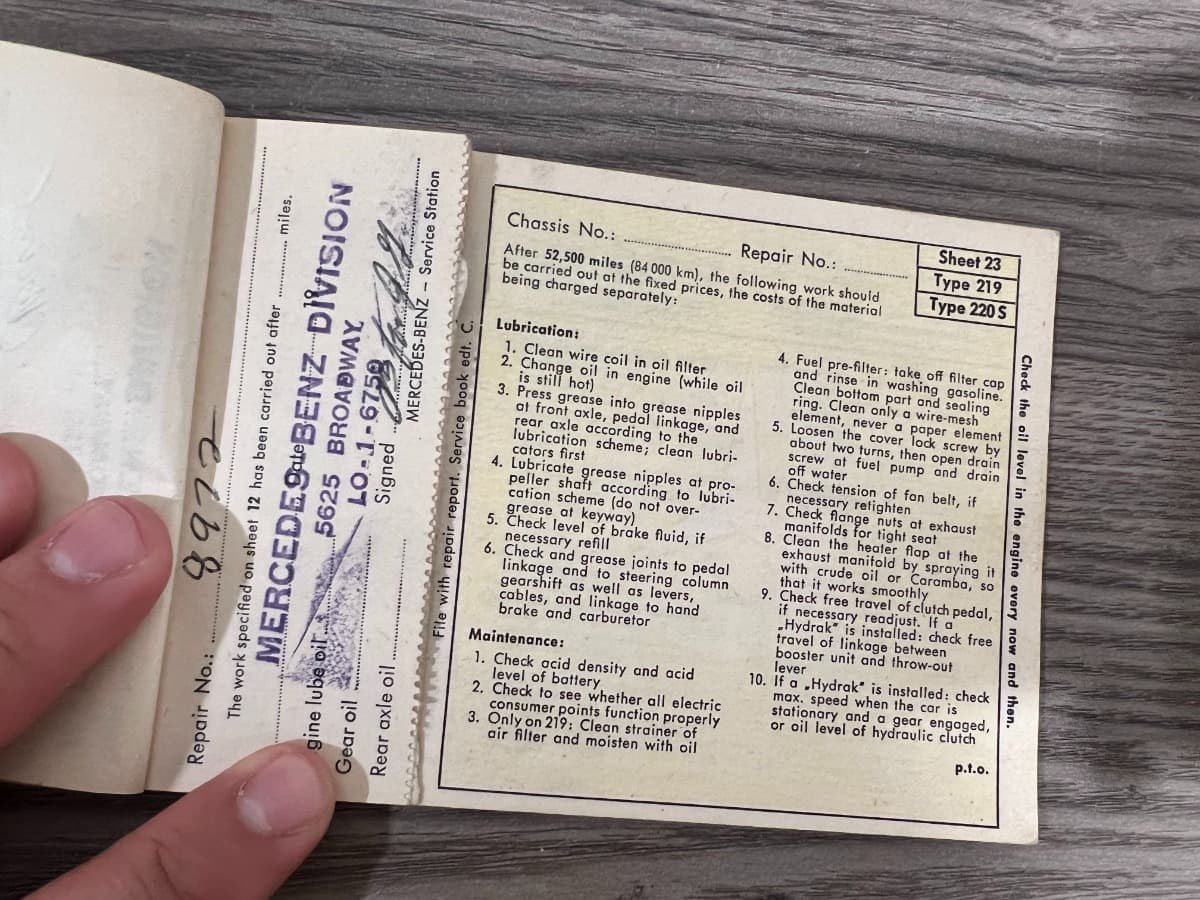 Repair No.: 8972
The work specified on sheet 12 has been carried out after
miles.
MERCEDES BENZ DIVISION
5625 BROADWAY
LO-1-6759
gine lube oil
Gear oil
Rear axle oil
Signed
MERCEDES-BENZ – Service Station
File with repair report. Service book edt. C.
Chassis No.: Repair No.:
Sheet 23
Type 219
Type 220 S
After 52,500 miles (84 000 km), the following work should
be carried out at the fixed prices, the costs of the material
being charged separately:
Lubrication:
1. Clean wire coil in oil filter
2. Change oil in engine (while oil
is still hot)
3. Press grease into grease nipples
at front axle, pedal linkage, and
rear axle according to the
lubrication scheme; clean lubri-
cators first
4. Lubricate grease nipples at pro-
peller shaft according to lubri-
cation scheme (do not over-
grease at keyway)
5. Check level of brake fluid, if
necessary refill
6. Check and grease joints to pedal
linkage and to steering column
gearshift as well as levers,
cables, and linkage to hand
brake and carburetor
Maintenance:
1. Check acid density and acid
level of battery
2. Check to see whether all electric
consumer points function properly
3. Only on 219: Clean strainer of
air filter and moisten with oil
4. Fuel pre-filter: take off filter cap
and rinse in washing gasoline.
Clean bottom part and sealing
ring. Clean only a wire-mesh
element, never a paper element
5. Loosen the cover lock screw by
about two turns, then open drain
screw at fuel pump and drain
off water
6. Check tension of fan belt, if
necessary retighten
7. Check flange nuts at exhaust
manifolds for tight seat
8. Clean the heater flap at the
exhaust manifold by spraying it
with crude oil or Caramba, so
that it works smoothly
9. Check free travel of clutch pedal,
if necessary readjust. If a
„Hydrak" is installed: check free
travel of linkage between
booster unit and throw-out
lever
10. If a „Hydrak" is installed: check
max. speed when the car is
stationary and a gear engaged,
or oil level of hydraulic clutch
p.t.o.
Check the oil level in the engine every now and then.